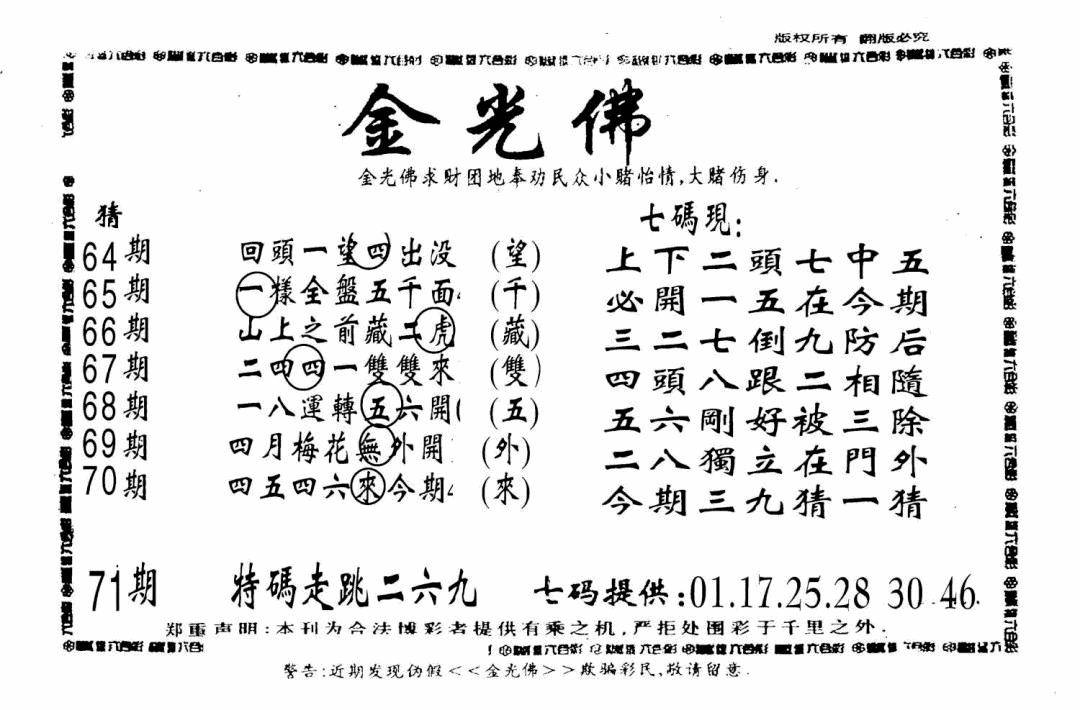 版权所有 翻版必究
金光佛
金光佛求财团地奉劝民众小赌怡情,大赌伤身.
猜
64期 回頭一望四出没 (望)
65期 一樣全盤五千面 (千)
66期 山上之前藏二虎 (藏)
67期 二四四一雙雙來 (雙)
68期 一八運轉五六開 (五)
69期 四月梅花無外開 (外)
70期 四五四六來今期 (來)
七碼現:
上下二頭七中五
必開一五在今期
三二七倒九防后
四頭八跟二相隨
五六剛好被三除
二八獨立在門外
今期三九猜一猜
71期 特碼走跳二六九 七码提供:01.17.25.28 30.46.
郑重声明:本刊为合法博彩者提供有乘之机,严拒处围彩于千里之外.
警告:近期发现伪假<<金光佛>>欺骗彩民,敬请留意.